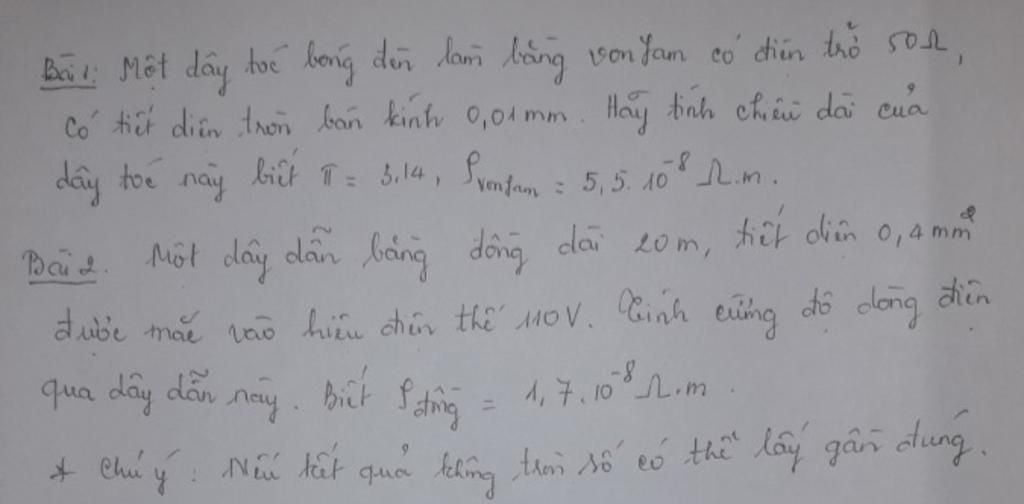 Bài 1: Một dây tóc bóng đèn làm bằng vonfam có điện trở 50Ω,
có tiết diện tròn bán kính 0,01mm. Hãy tính chiều dài của
dây tóc này biết π = 3,14, ρvonfam = 5,5.10⁻⁸ Ω.m.
Bài 2. Một dây dẫn bằng đồng dài 20m, tiết diện 0,4mm²
được mắc vào hiệu điện thế 110V. Tính cường độ dòng điện
qua dây dẫn này. Biết ρđồng = 1,7.10⁻⁸ Ω.m.
* Chú ý: Nếu kết quả không tròn số có thể lấy gần đúng.